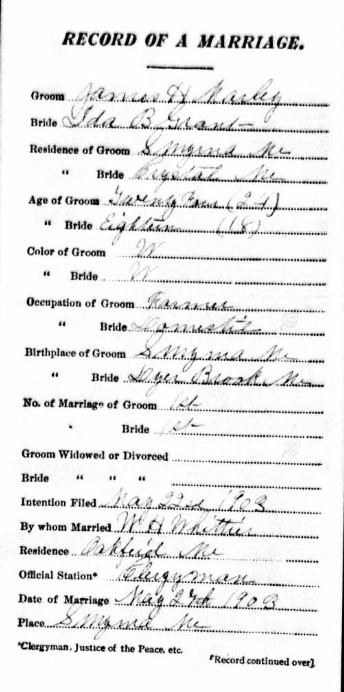 RECORD OF A MARRIAGE.
Groom James H Warley
Bride Ida B Grant
Residence of Groom Smyrna Me
" Bride Crystal Me
Age of Groom Twenty Four (24)
" Bride Eighteen (18)
Color of Groom W
" Bride W
Occupation of Groom Farmer
" Bride Domestic
Birthplace of Groom Smyrna Me
" Bride Dyer Brook Me
No. of Marriage of Groom 1st
" Bride 1st
Groom Widowed or Divorced
Bride " " "
Intention Filed May 22nd 1903
By whom Married W H Whittier
Residence Oakfield Me
Official Station* Clergyman
Date of Marriage May 27th 1903
Place Smyrna Me
*Clergyman, Justice of the Peace, etc.
[Record continued over]